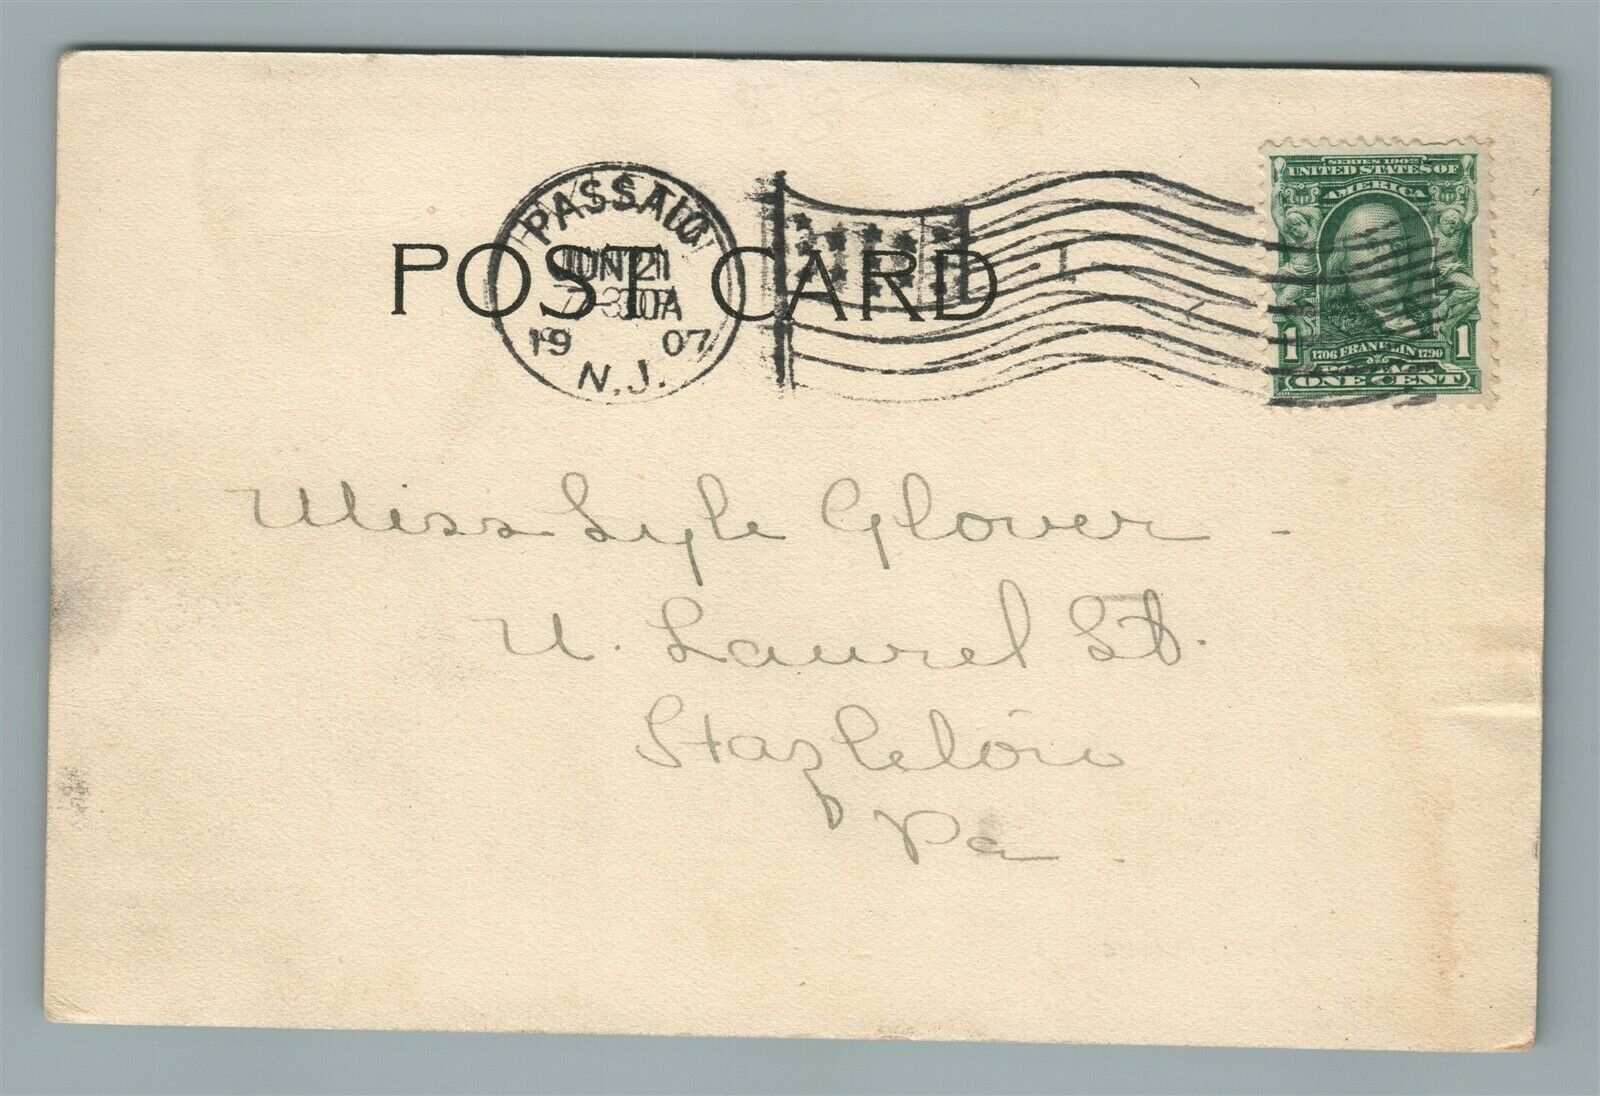 PASSAIC
JUN 21
7-30A
1907
N.J.
POST CARD
1
SERIES 1902
UNITED STATES OF
AMERICA
1 1706 FRANKLIN 1790 1
POSTAGE
ONE CENT
Miss Lyle Glover -
N. Laurel St.
Hazleton
Pa.